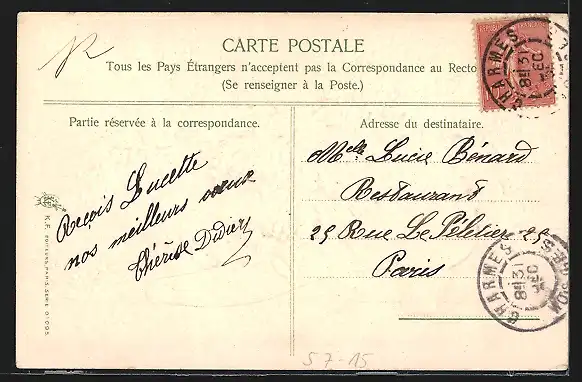 R
CARTE POSTALE
Tous les Pays Étrangers n'acceptent pas la Correspondance au Recto
(Se renseigner à la Poste.)
Partie réservée à la correspondance.
Adresse du destinataire.
Reçois Lucette
nos meilleurs vœux
Thérèse Didier
Melle Lucie Bénard
Restaurant
25 Rue Le Peletier 25
Paris
CHARMES
31
DEC
CHARMES
VOSGES
31
DEC
K.F. EDITEURS, PARIS, SERIE
57-15